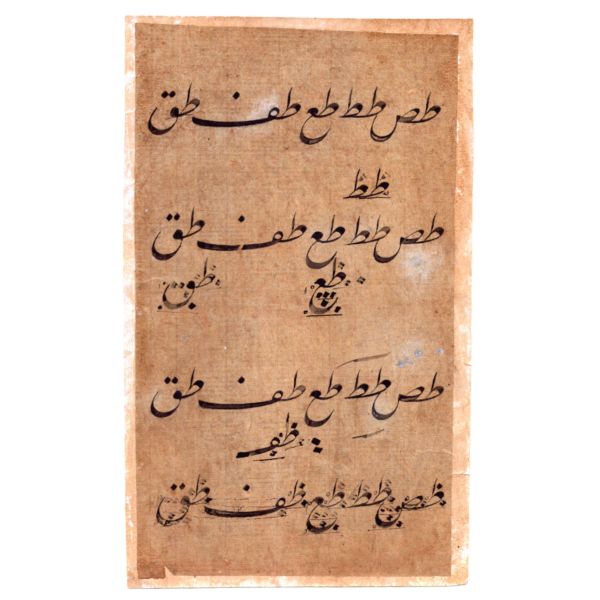 طص طط طع طف طق
طط
طص طط طع طف طق
طع طق
طص طط طع طف طق
طف
طص طط طع طف طق